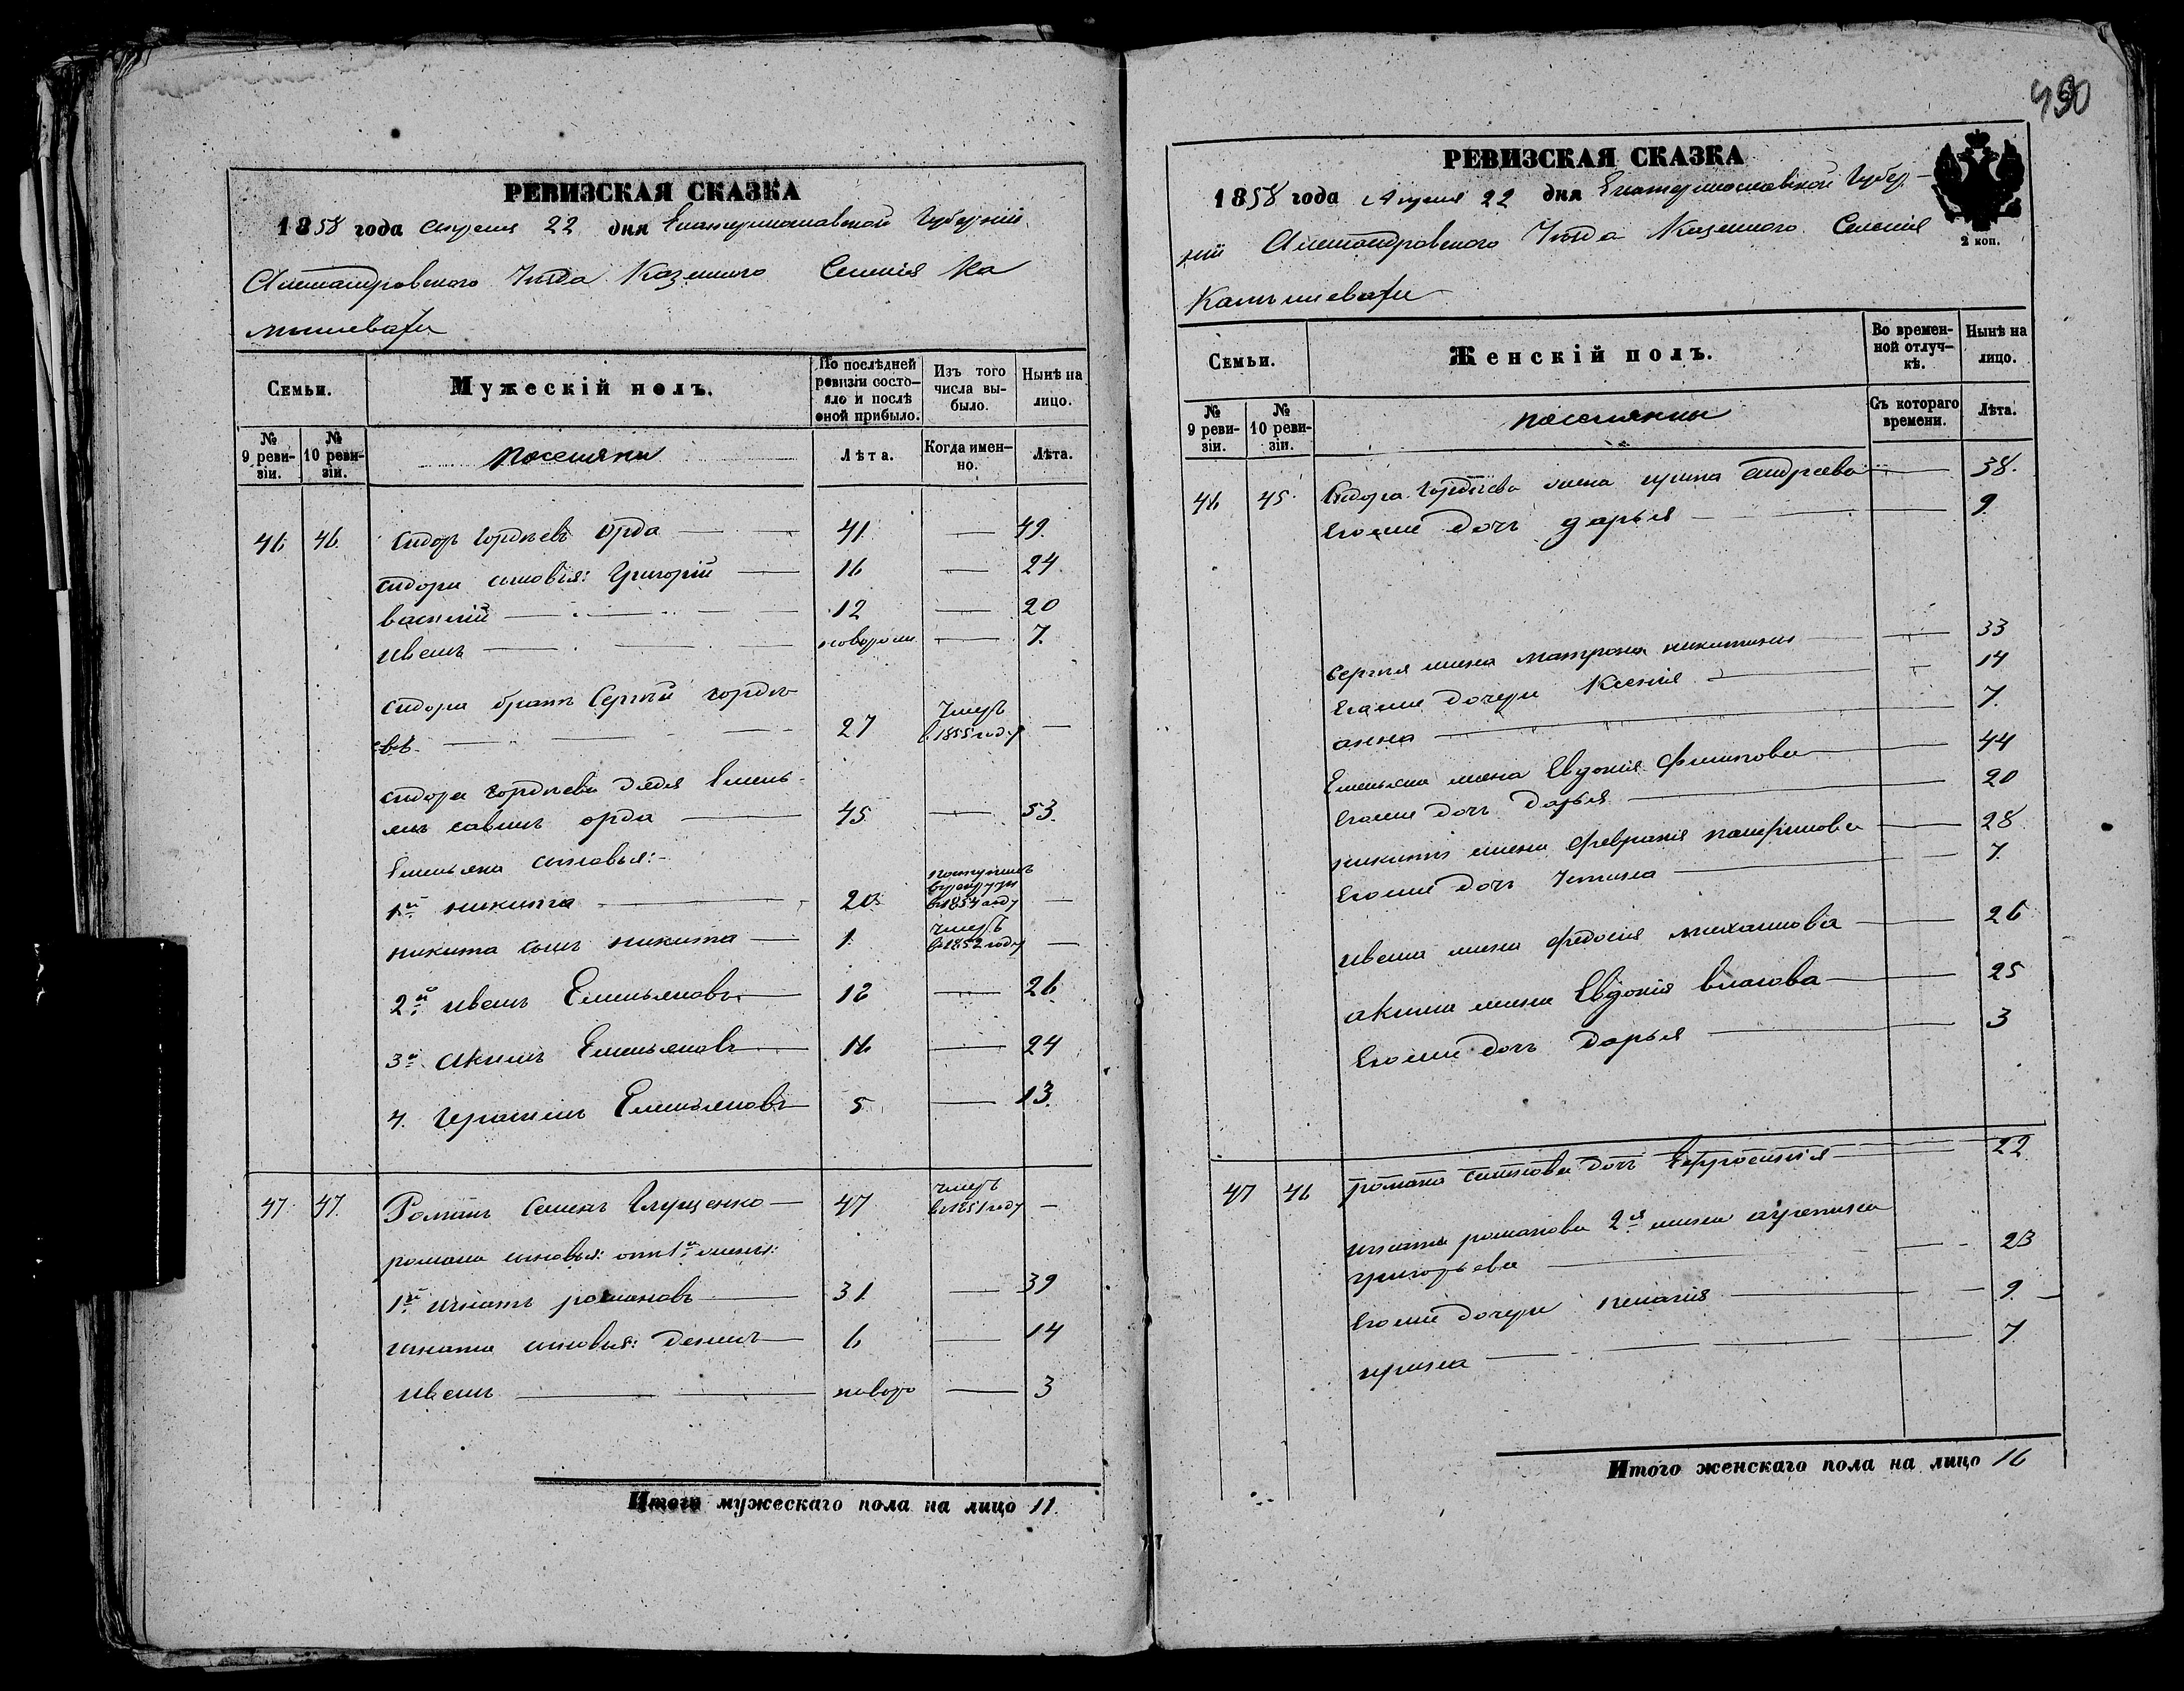 РЕВИЗСКАЯ СКАЗКА
1858 года апреля 22 дня Екатеринославской Губерніи
Александровского Уѣзда Казенного Селенія Ка
мышевахи
Семьи.
Мужескій полъ.
По послѣдней ревизіи состояло и послѣ оной прибыло.
Изъ того числа выбыло.
Нынѣ на лицо.
№ 9 ревизіи.
№ 10 ревизіи.
поселяни
Лѣта.
Когда именно.
Лѣта.
46 46. Сидоръ Гордѣевъ Орда — 41 — 49.
Сидора сыновья: Григорій — 16 — 24
василій — 12 — 20
иванъ — новорож — 7.
Сидора братъ Сергѣй гордѣ
евъ — 27 Умеръ в 1855 году —
Сидора гордѣева дядя Емель-
янъ савинъ орда — 45 — 53.
Емельяна сыновья:
1й никита — 20 поступилъ в рекруты в 1854 году —
никита сынъ никита — 1. умеръ в 1852 году —
2й иванъ Емельяновъ — 18 — 26
3й Акимъ Емельяновъ — 16 — 24
4. Герасимъ Емельяновъ — 5 — 13.
47 47. Романъ Семенъ Глущенко — 47 умеръ в 1851 году —
романа сыновья: отъ 1й жены:
1й игнатъ романовъ — 31. — 39
игната сыновья: Денисъ — 6 — 14
иванъ — новоро — 3
Итого мужескаго пола на лицо 11.
490
РЕВИЗСКАЯ СКАЗКА
1858 года Апреля 22 дня Екатеринославской Губер-
ніи Александровского Уѣзда Казенного Селенія
Камышевахи
2 коп.
Семьи.
Женскій полъ.
Во временной отлучкѣ.
Нынѣ на лицо.
№ 9 ревизіи.
№ 10 ревизіи.
поселянки
Съ котораго времени.
Лѣта.
46 45. Сидора Гордѣева жена ирина андреева — 38.
Его же дочь дарья — 9
Сергѣя жена матрона никитина — 33
Его же дочери Ксенія — 14
анна — 7.
Емельяна жена Евдокія Филипова — 44
Его же дочь Дарья — 20
никиты жена Февронія панфилова — 28
Его же дочь Устинья — 7.
ивана жена федосія михайлова — 26
акима жена Евдокія власова — 25
Его же дочь Дарья — 3
47 46 романа семенова дочь Ефросинія — 22
игната романова 2я жена агрепина
григорьева — 23
Его же дочери пелагія — 9.
ирина — 7
Итого женскаго пола на лицо 16